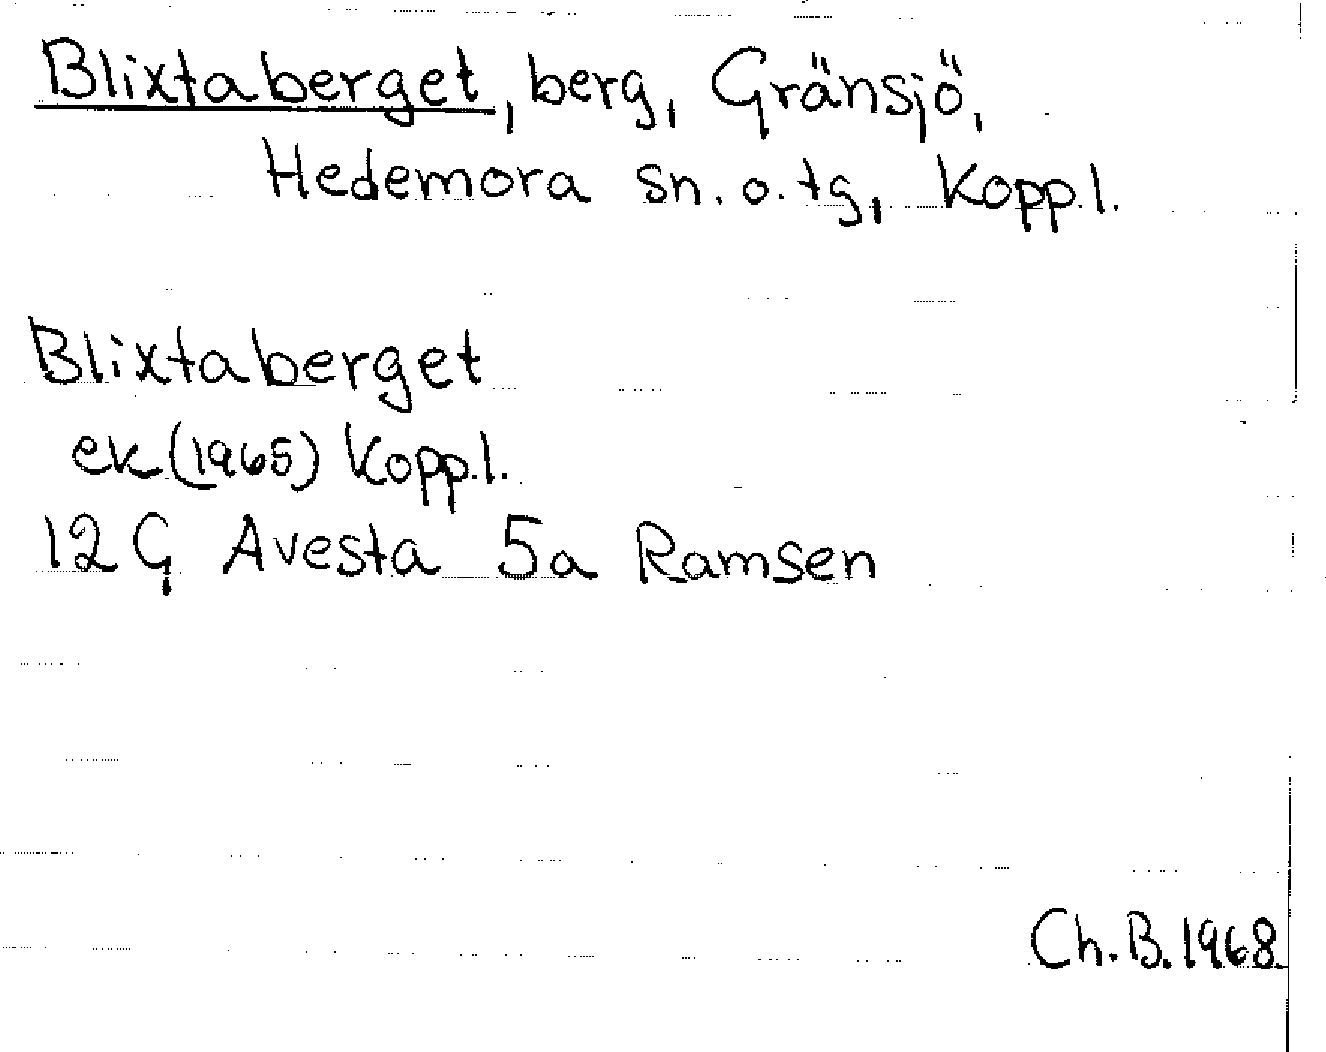 Blixtaberget, berg, Gränsjö,
Hedemora sn. o. tg, Kopp.l.
Blixtaberget
ek (1965) Kopp.l.
12G Avesta 5a Ramsen
Ch.B.1968.